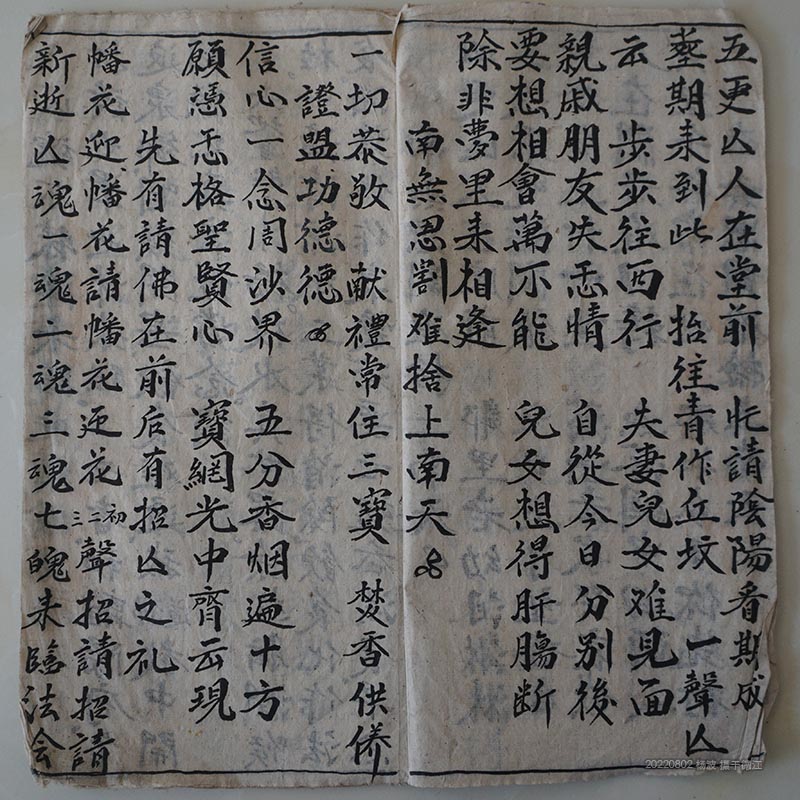 五更亾人在堂前 忙請陰陽看期成
塟期来到此 抬往青作丘坟 一聲亾
云 步步往西行 夫妻兒女难見面
親戚朋友失恣情 自從今日分別後
要想相會萬不能 兒女想得肝腸断
除非夢里来相逢
南無恩割难捨上南天
一切恭敬 献禮常住三寶 焚香供侨
證盟功德德
信心一念周沙界 五分香烟遍十方
願憑恣格聖賢心 寳網光中齊云現
先有請佛在前后有招亾之礼
幡花迎幡花請幡花迎花 初二三 聲招請招請
新逝亾魂一魂二魂三魂七魄来臨法会
20220802 杨波 摄于锦江